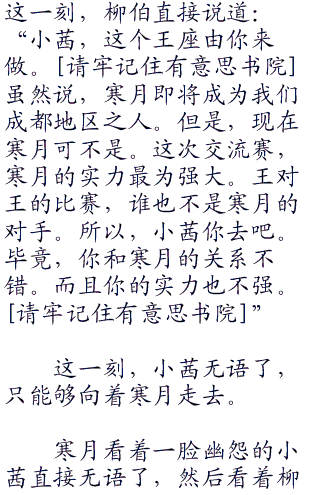 这一刻，柳伯直接说道：
“小茜，这个王座由你来
做。[请牢记住有意思书院]
虽然说，寒月即将成为我们
成都地区之人。但是，现在
寒月可不是。这次交流赛，
寒月的实力最为强大。王对
王的比赛，谁也不是寒月的
对手。所以，小茜你去吧。
毕竟，你和寒月的关系不
错。而且你的实力也不强。
[请牢记住有意思书院]”
这一刻，小茜无语了，
只能够向着寒月走去。
寒月看着一脸幽怨的小
茜直接无语了，然后看着柳